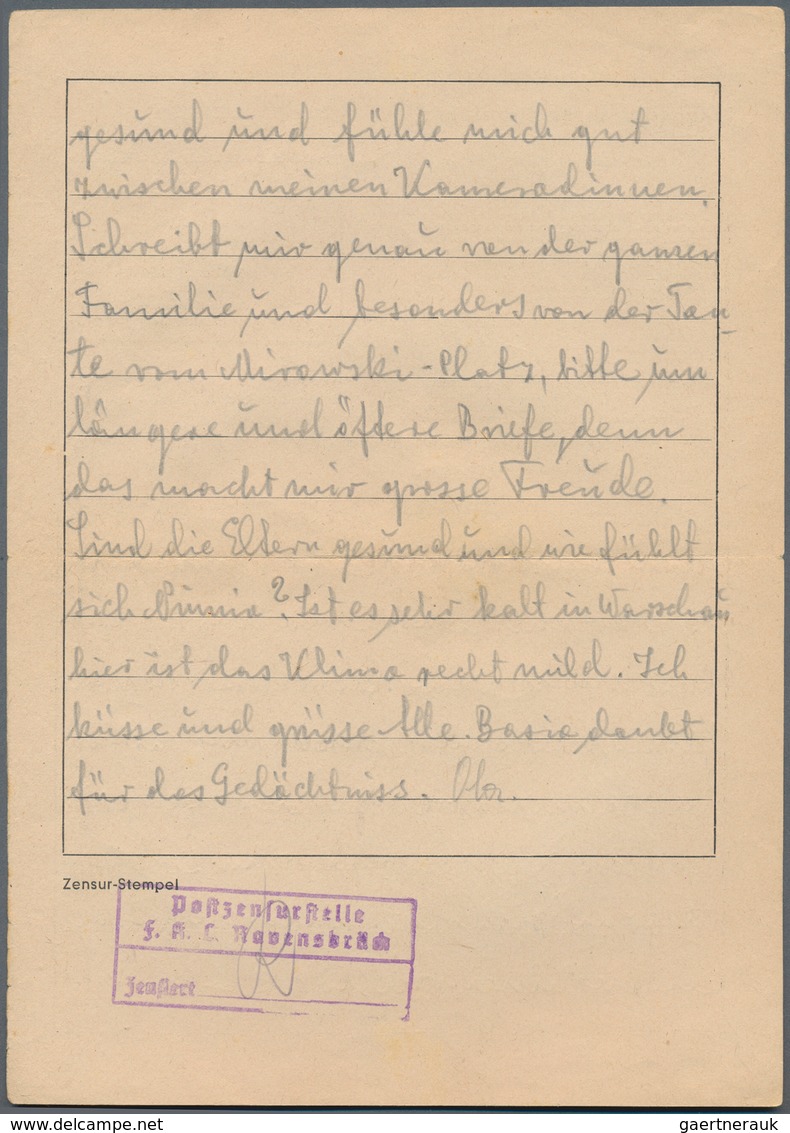 gesund und fühle mich gut
zwischen meinen Kameradinnen.
Schreibt mir genau von der ganzen
Familie und besonders von der Tan-
te vom Mirowski-Platz, bitte um
längere und öftere Briefe, denn
das macht mir grosse Freude.
Sind die Eltern gesund und wie fühlt
sich Niunia? Ist es sehr kalt in Warschau
hier ist das Klima recht mild. Ich
küsse und grüsse Alle. Basia dankt
für das Gedächtniss.
Zensur-Stempel
Postzensurstelle
F. K. L. Ravensbrück
Zensiert
www.delcampe.net
gaertnerauk